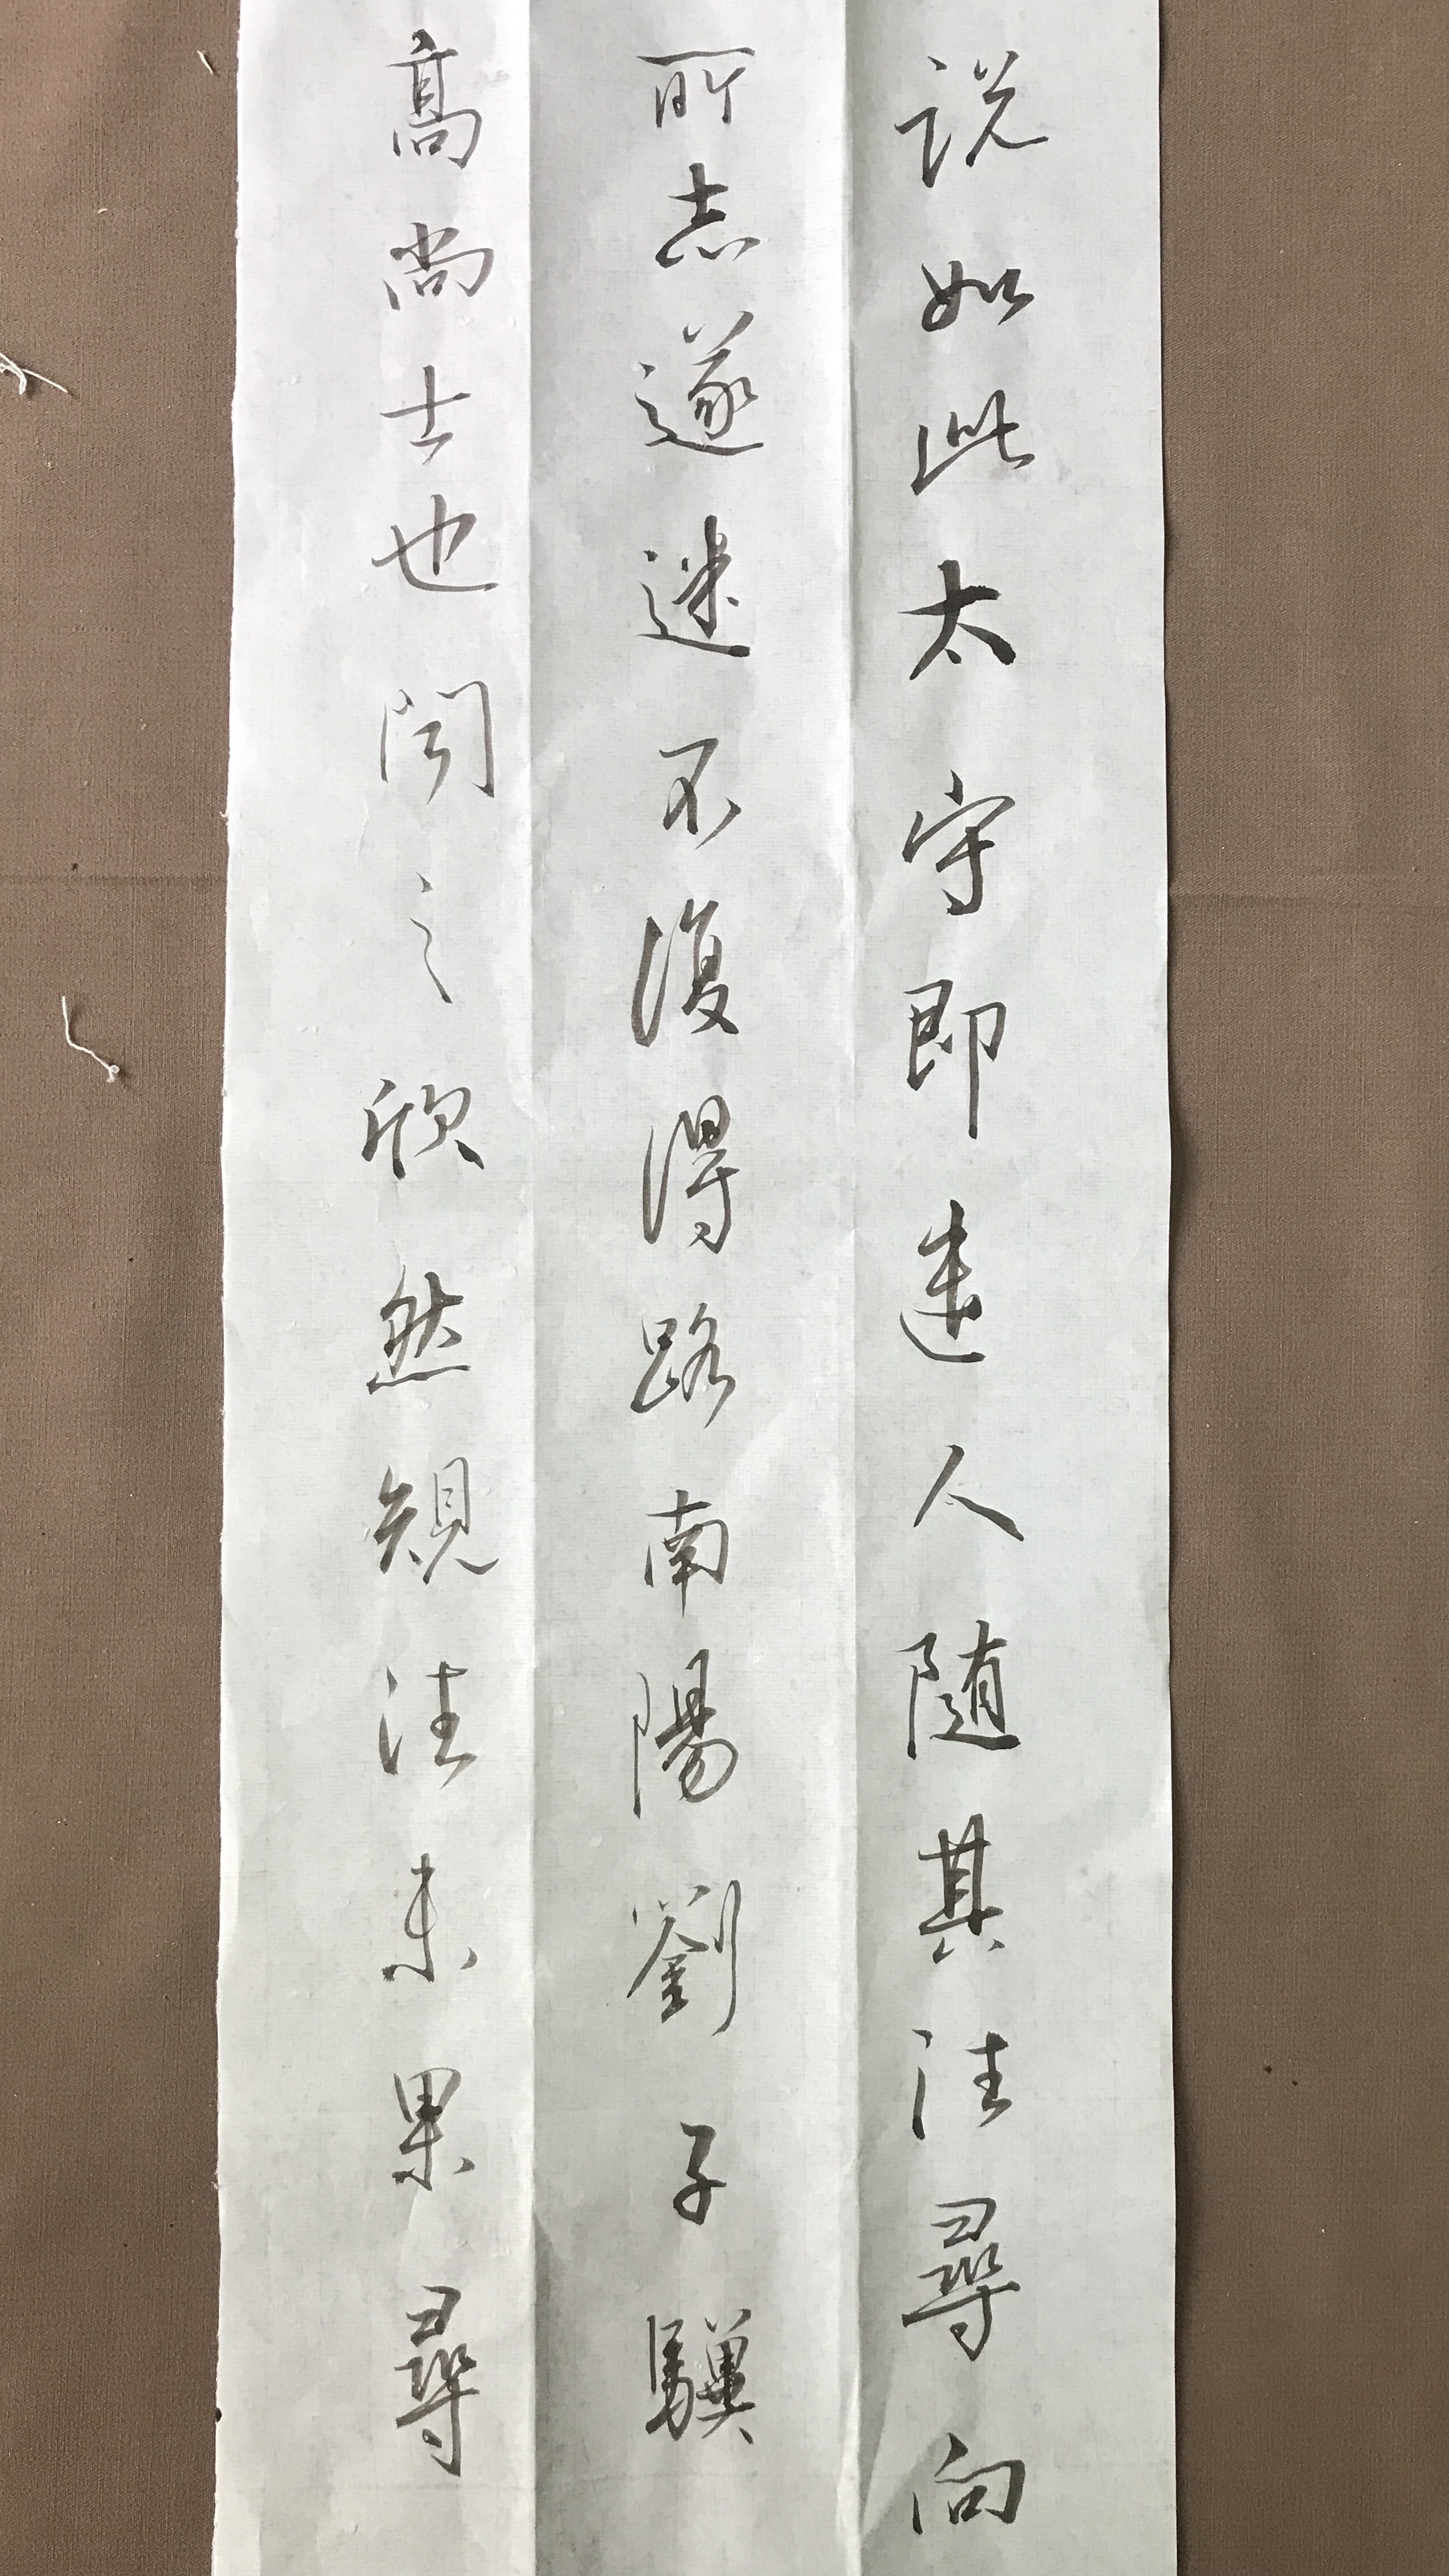 説如此太守即遣人随其往尋向
所志遂迷不復得路南陽劉子驥
高尚士也聞之欣然規往未果尋